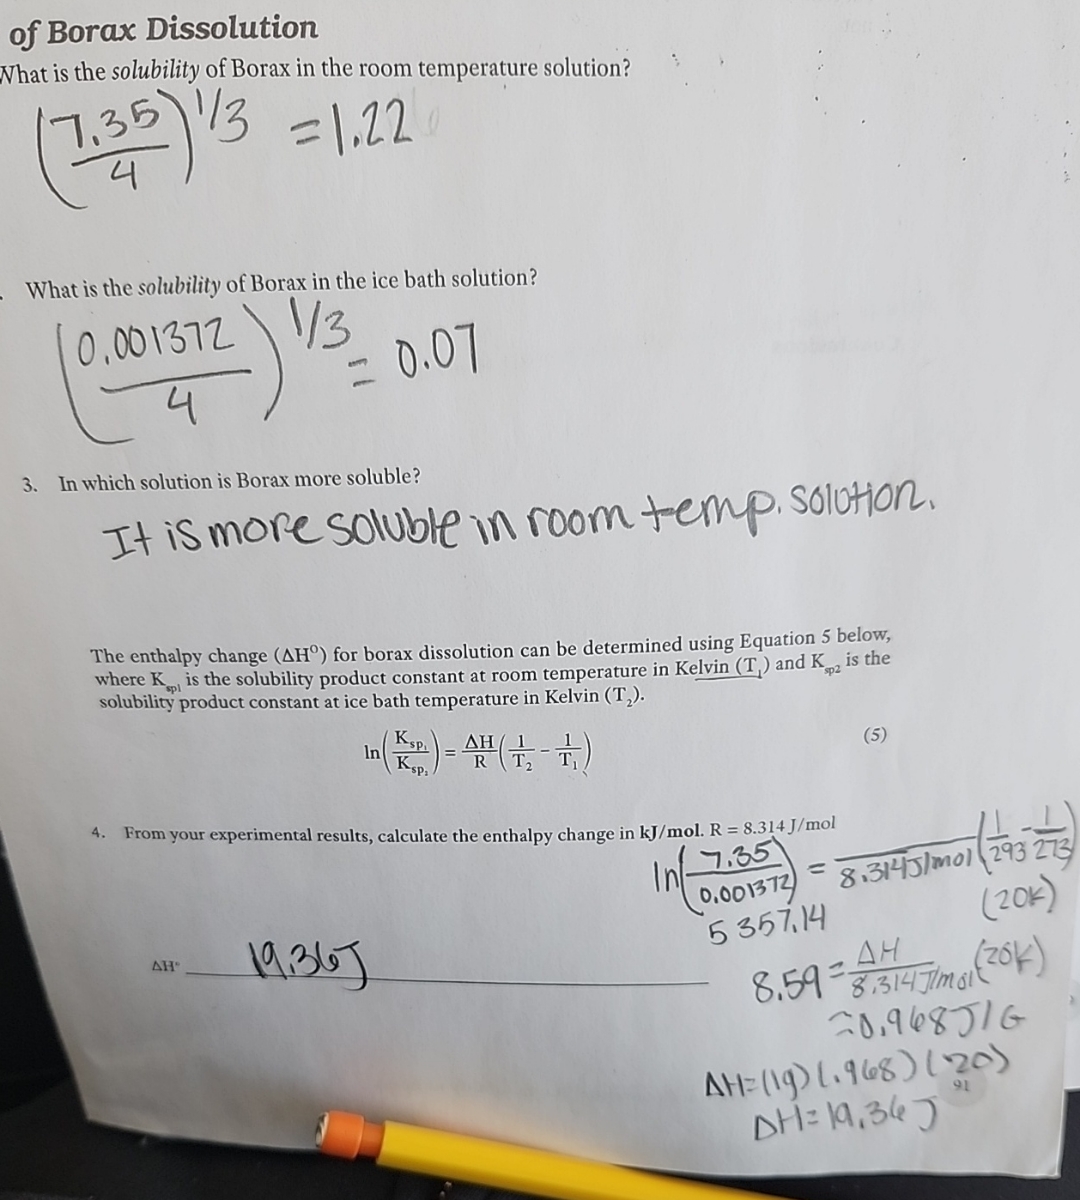 of Borax Dissolution
What is the solubility of Borax in the room temperature solution?
(7.35/4)^1/3 = 1.22
What is the solubility of Borax in the ice bath solution?
(0.001372/4)^1/3 = 0.07
3. In which solution is Borax more soluble?
It is more soluble in room temp. solution.
The enthalpy change (ΔH°) for borax dissolution can be determined using Equation 5 below,
where Ksp1 is the solubility product constant at room temperature in Kelvin (T1) and Ksp2 is the
solubility product constant at ice bath temperature in Kelvin (T2).
ln(Ksp1/Ksp2) = ΔH/R (1/T2 - 1/T1) (5)
4. From your experimental results, calculate the enthalpy change in kJ/mol. R = 8.314 J/mol
ln(7.35/0.001372) = /8.314J/mol (1/293 - 1/273)
5357.14 (20K)
ΔH° 19.36J
8.59 = ΔH/8.314 J/mol (20K)
= 0.968 J/G
ΔH = (1g) (.968) (20)
91
ΔH = 19.36 J